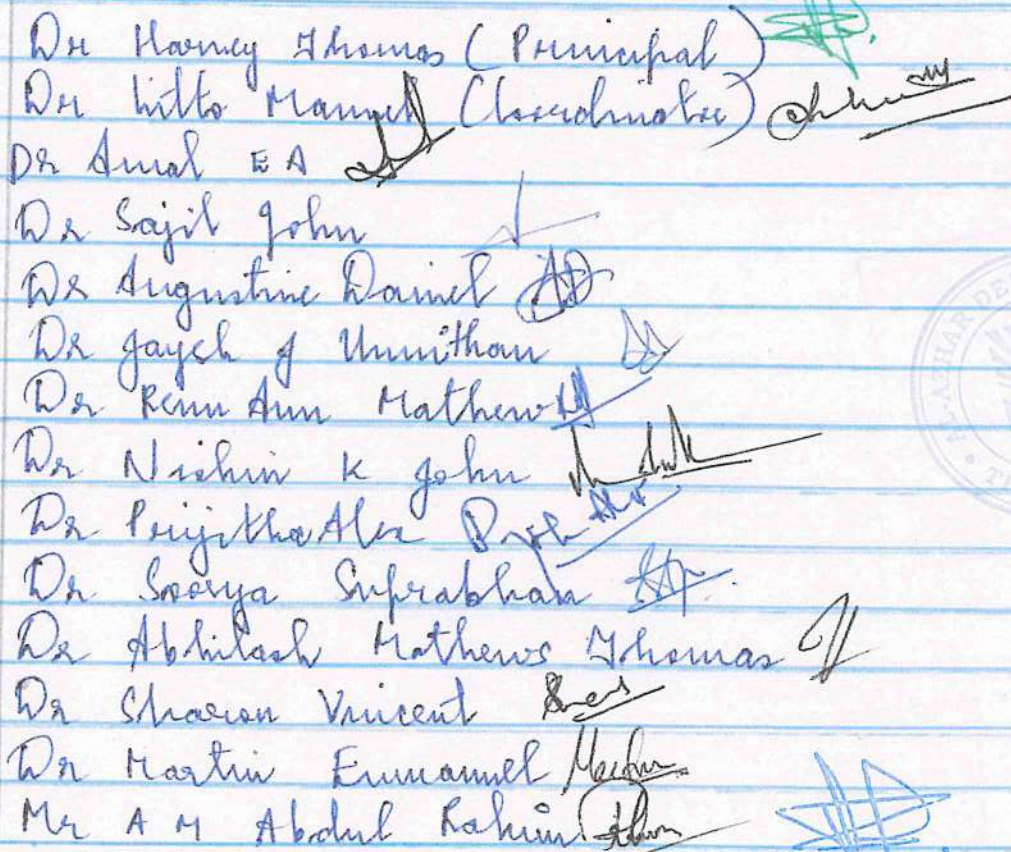 Dr Harvey Thomas (Principal)
Dr Litto Manuel (Coordinator)
Dr Amal E A
Dr Sajil John
Dr Augustine Daniel AD
Dr Jayesh J Unnithan
Dr Renu Ann Mathew
Dr Nishin K John
Dr Prijitha Alex
Dr Soorya Suprabhan
Dr Abhilash Mathews Thomas
Dr Sharon Vincent
Dr Martin Emmanuel
Mr A M Abdul Rahim
AL-AZHAR DE